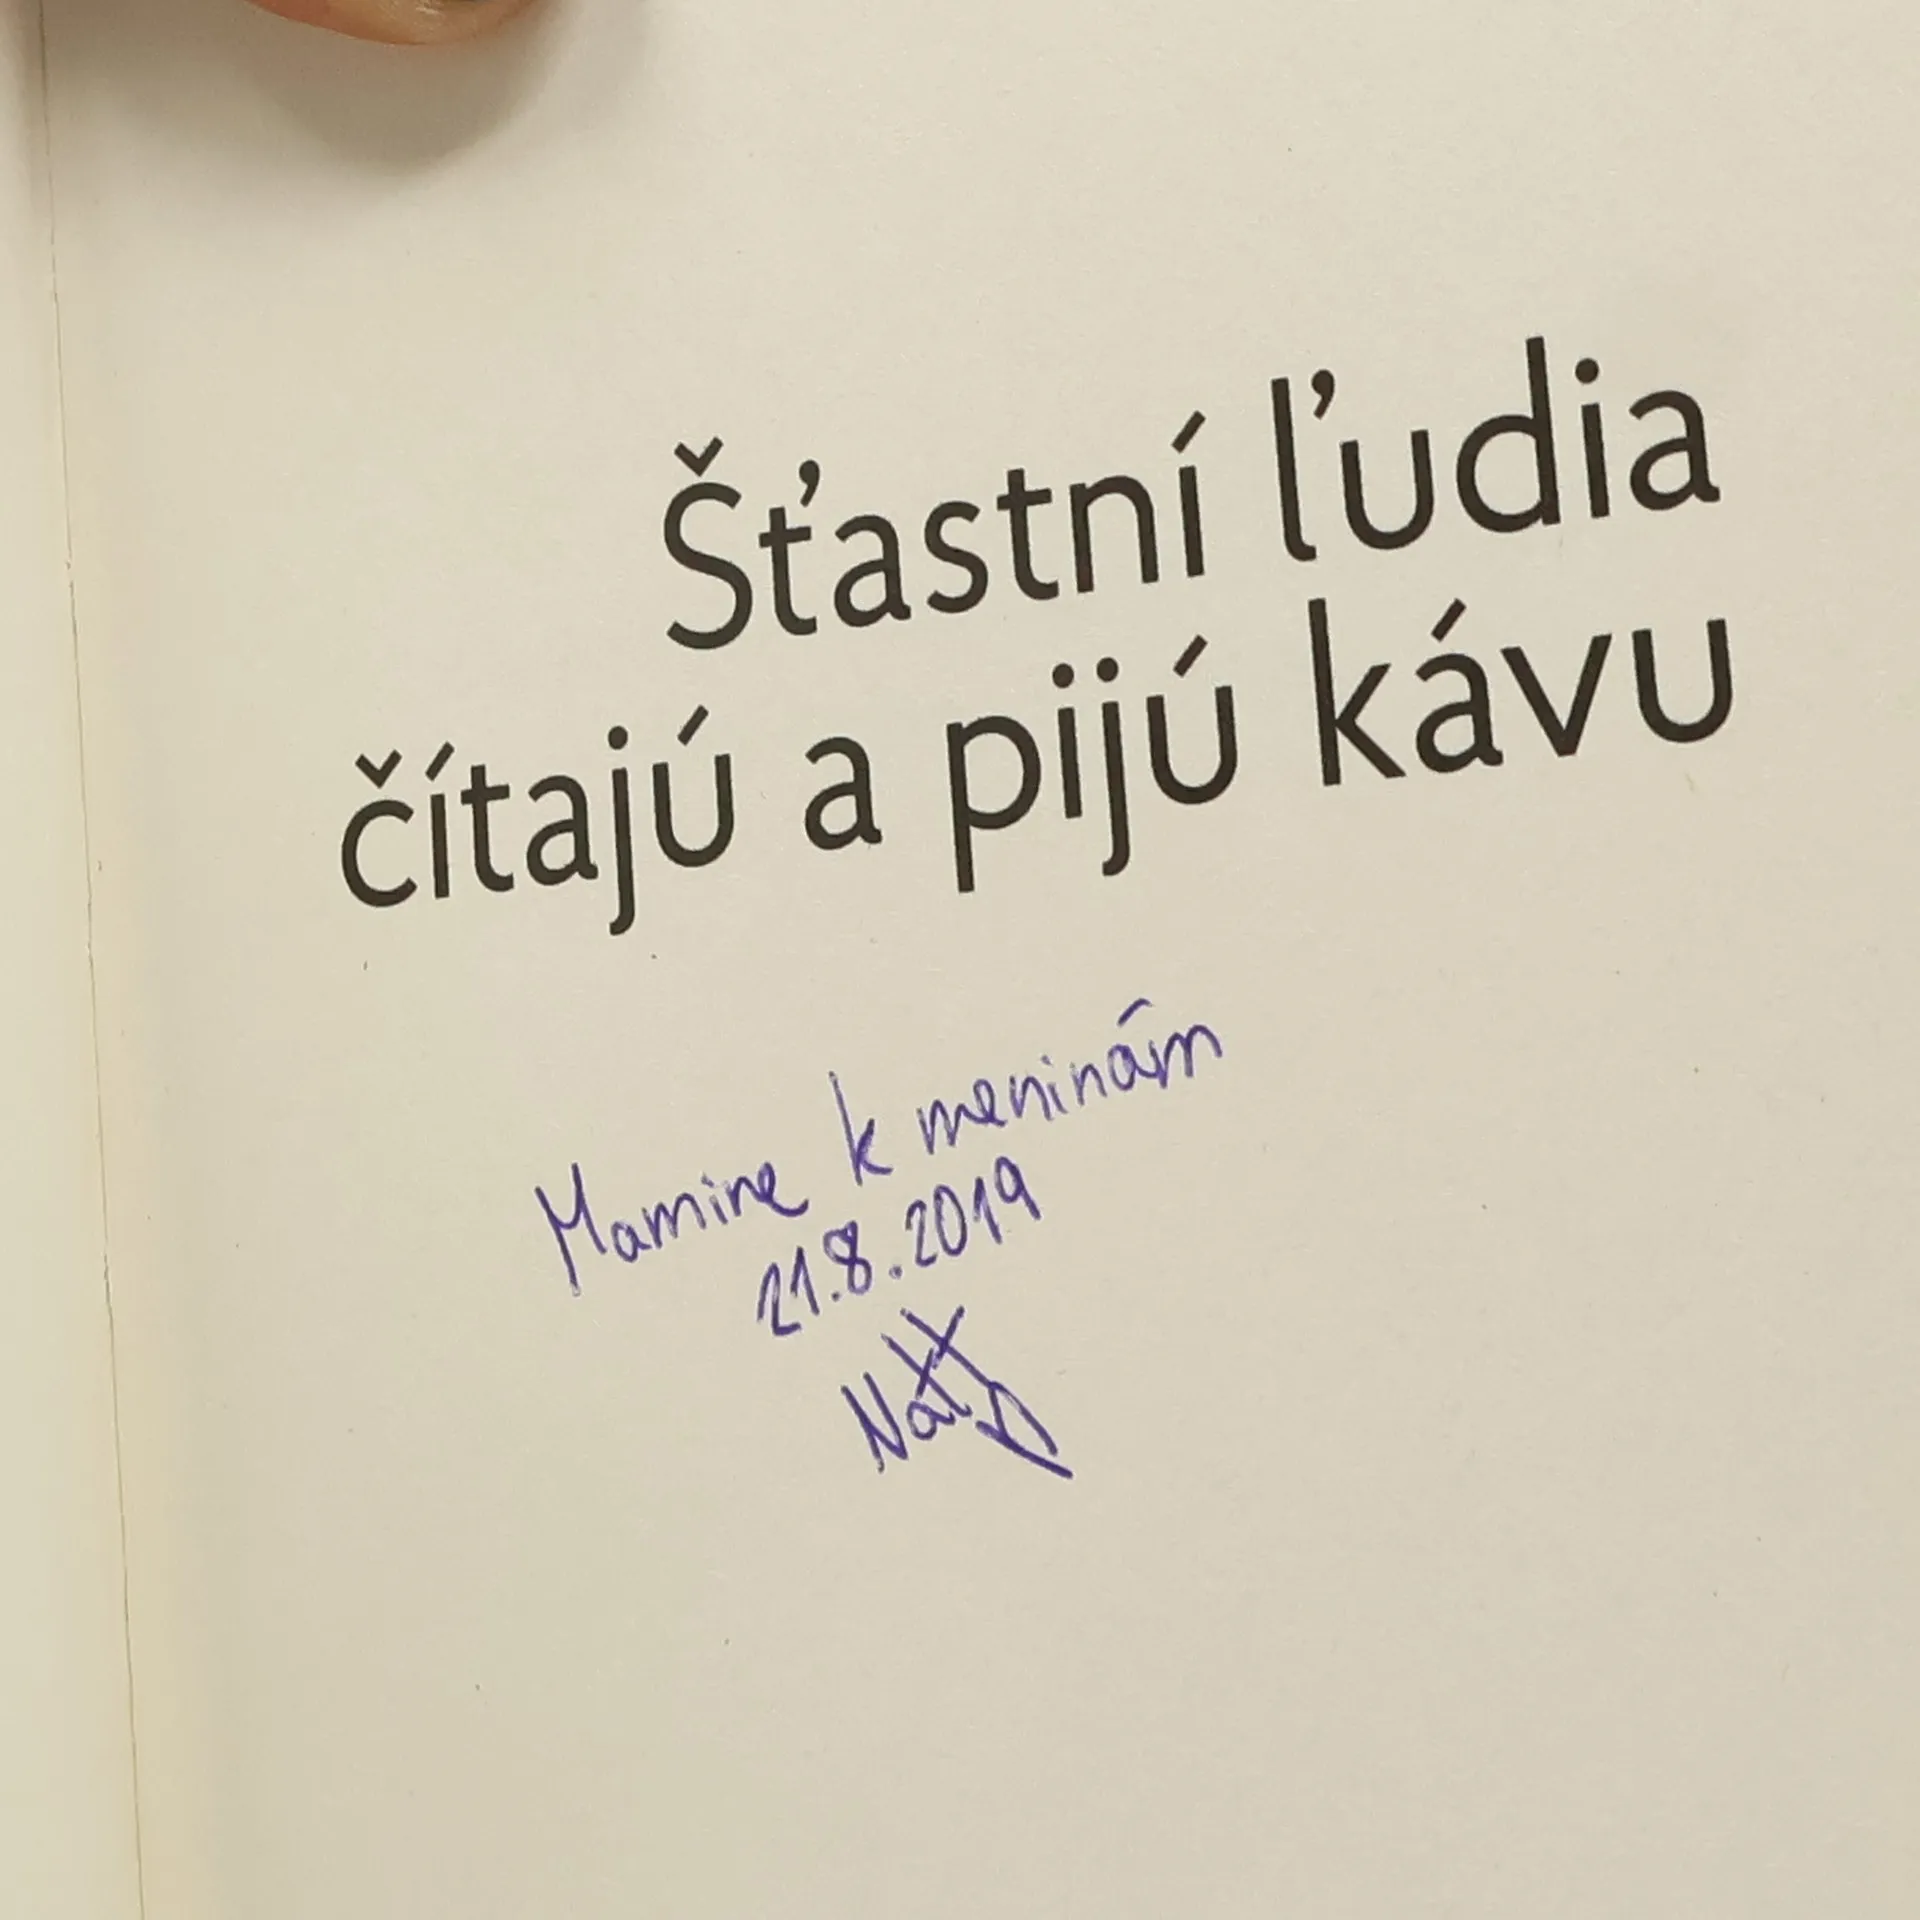 Šťastní ľudia
čítajú a pijú kávu
Mamine k meninám
21.8.2019
Natty